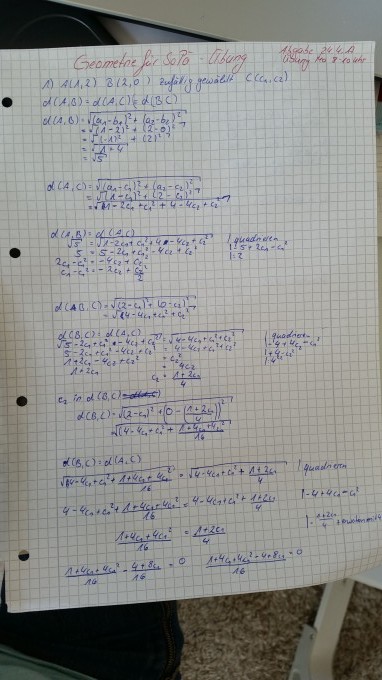 Geometrie für SoPä - Übung
Abgabe 24.4. A
Übung Mo 8-10 Uhr
1) A(1,2) B(2,0) zufällig gewählt C(c₁,c₂)
d(A,B) = d(A,C) = d(B,C)
d(A,B) = √((a₁-b₁)² + (a₂-b₂)²)
= √((1-2)² + (2-0)²)
= √((-1)² + (2)²)
= √(1+4)
= √5
d(A,C) = √((a₁-c₁)² + (a₂-c₂)²)
= √((1-c₁)² + (2-c₂)²)
= √(1-2c₁+c₁² + 4-4c₂+c₂²)
d(A,B) = d(A,C)
√5 = √(1-2c₁+c₁²+4-4c₂+c₂²) | quadrieren
5 = 5-2c₁+c₁²-4c₂+c₂² | -5+2c₁-c₁²
2c₁-c₁² = -4c₂+c₂² | :2
d(B,C) = √((2-c₁)² + (0-c₂)²)
= √(4-4c₁+c₁²+c₂²)
d(B,C) = d(A,C)
√(5-2c₁+c₁²-4c₂+c₂²) = √(4-4c₁+c₁²+c₂²) | quadrieren
5-2c₁+c₁²-4c₂+c₂² = 4-4c₁+c₁²+c₂² | -4+4c₁-c₁²
1+2c₁-4c₂+c₂² = c₂²
1+2c₁ = 4c₂
c₂ = (1+2c₁)/4
c₂ in d(B,C)
d(B,C) = √((2-c₁)² + (0-(1+2c₁)/4)²)
√(4-4c₁+c₁² + (1+4c₁+4c₁²)/16)
d(B,C) = d(A,C)
√(4-4c₁+c₁²+(1+4c₁+4c₁²)/16) = √(4-4c₁+c₁²+(1+2c₁)/4) | quadrieren
4-4c₁+c₁²+(1+4c₁+4c₁²)/16 = 4-4c₁+c₁²+(1+2c₁)/4 | -4+4c₁-c₁²
(1+4c₁+4c₁²)/16 = (1+2c₁)/4 | -(1+2c₁)/4
(1+4c₁+4c₁²)/16 - (4+8c₁)/16 = 0 (1+4c₁+4c₁²-4+8c₁)/16 = 0